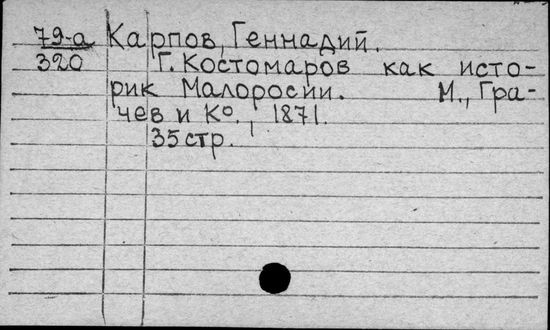 79-а Карпов, Геннадий.
320 Г. Костомаров как исто-
рик Малоросии. М., Гра-
чев и Ко, 1871.
35 стр.